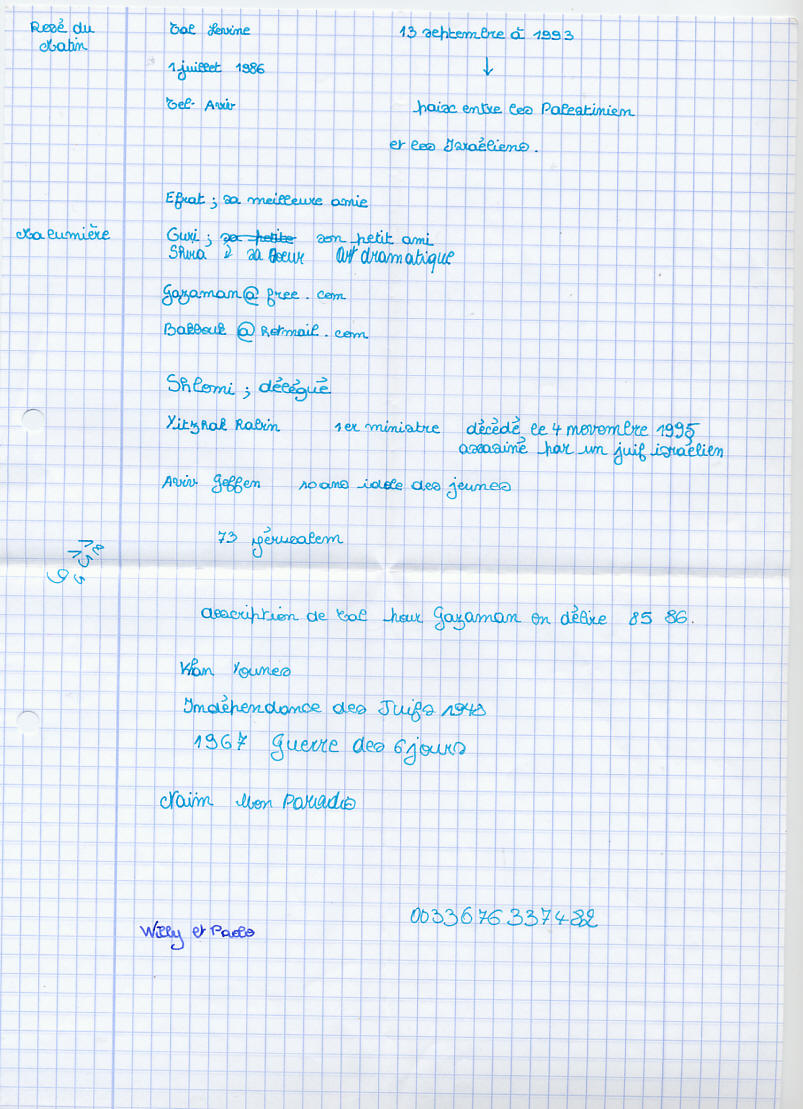 Tal Levine 13 septembre à 1993
1 juillet 1986
Tel-Aviv paix entre les Palestinien
et les Israéliens.
Efrat ; sa meilleure amie
Guri ; sa petite son petit ami
sa soeur Art dramatique
Gazaman@free.com
@hotmail.com
Shlomi ; délégué
Yitzhak Rabin 1er ministre décédé le 4 novembre 1995
assasiné par un juif israélien
Aviv Geffen idole des jeunes
73 jérusalem
description de Tal pour Gazaman en délire 85 86.
Khan Younes
Indépendance des Juifs
1967 Guerre des 6 jours
Naïm
Willy et Paolo 0033676337482